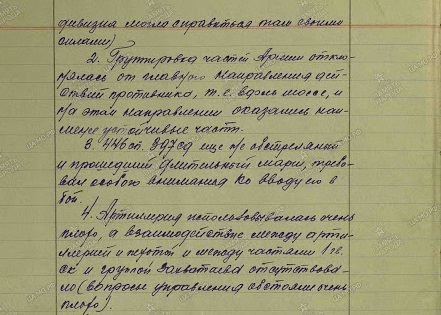 дивизия могла справиться там своими
силами)
2. Группировка частей Армии откло-
нялась от главного направления дей-
ствий противника, т.е. вдоль шоссе, и
на этом направлении оказались наи-
менее устойчивые части.
3. 446сп. 397сд еще не обстрелянный
и прошедший длительный марш, требо-
вал особого внимания ко вводу его в
бой.
4. Артиллерия использовывалась очень
плохо, а взаимодействие между арти-
ллерией и пехотой и между частями 1 гв.
ск и группой Захватаева отсутствова-
ло (вопросы управления обстояли очень
плохо).